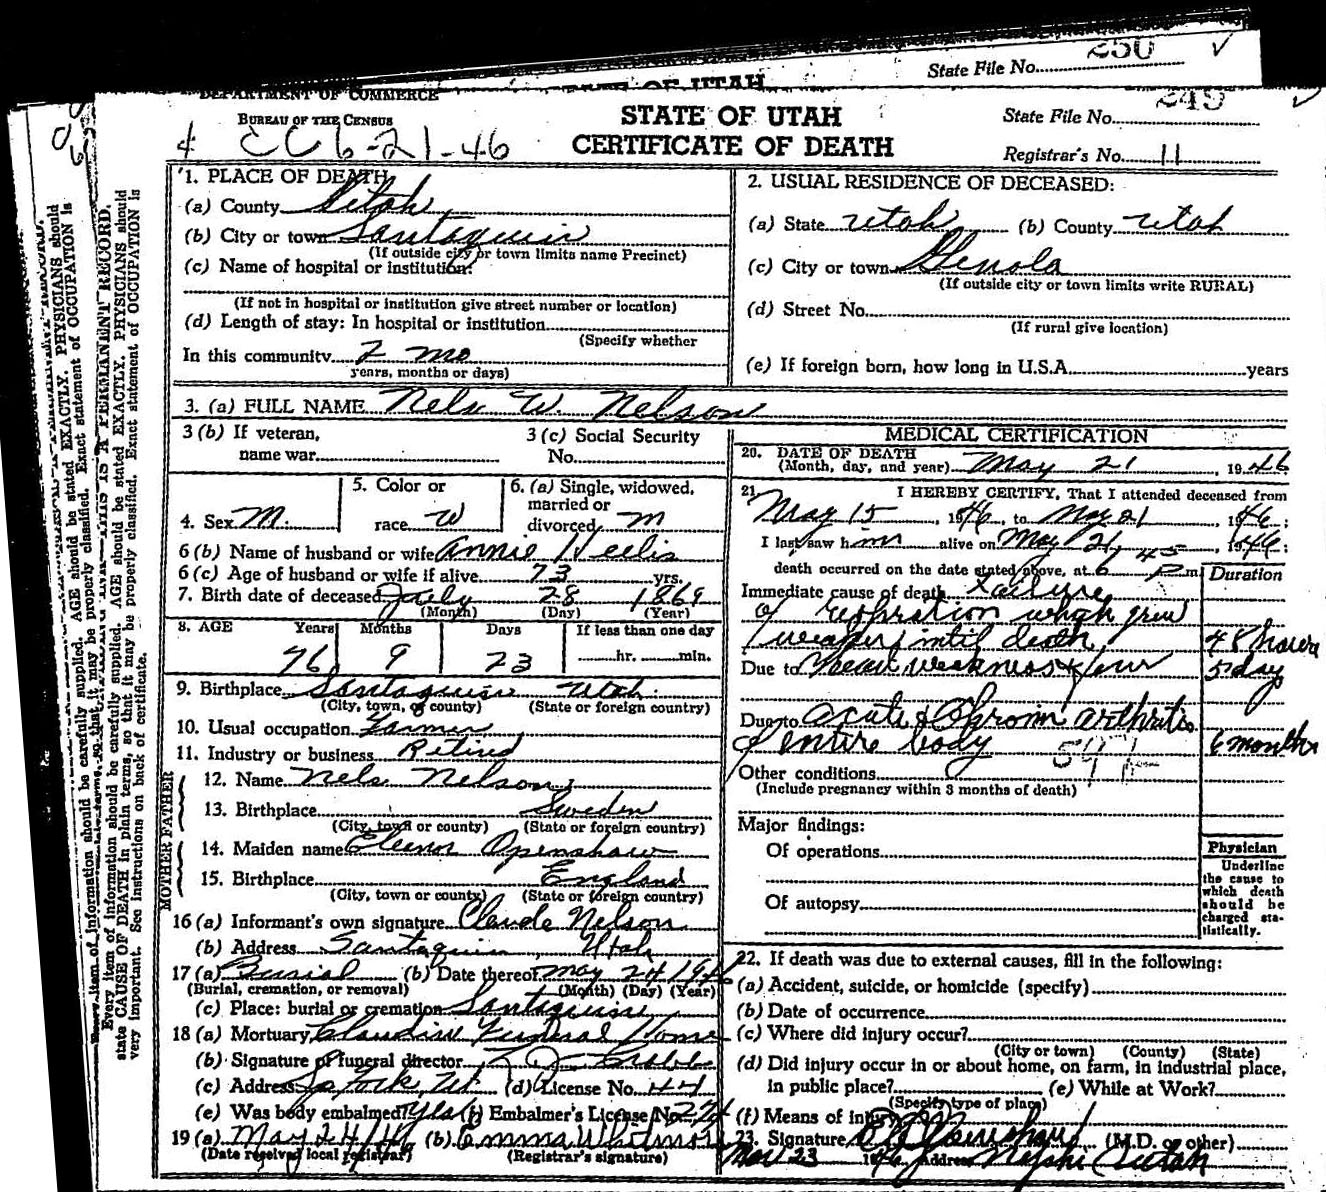 250
State File No.
DEPARTMENT OF COMMERCE
BUREAU OF THE CENSUS
STATE OF UTAH
CERTIFICATE OF DEATH
State File No. 249
Registrar's No. 11
1. PLACE OF DEATH
(a) County Utah
(b) City or town Santaquin
(If outside city or town limits name Precinct)
(c) Name of hospital or institution:
(If not in hospital or institution give street number or location)
(d) Length of stay: In hospital or institution
(Specify whether
In this community 2 mo
years, months or days)
2. USUAL RESIDENCE OF DECEASED:
(a) State Utah (b) County Utah
(c) City or town Genola
(If outside city or town limits write RURAL)
(d) Street No.
(If rural give location)
(e) If foreign born, how long in U.S.A. years
3. (a) FULL NAME Nels W. Nelson
3 (b) If veteran, name war
3 (c) Social Security No.
4. Sex M.
5. Color or race W
6. (a) Single, widowed, married or divorced m
6 (b) Name of husband or wife Annie Heelis
6 (c) Age of husband or wife if alive 73 yrs.
7. Birth date of deceased July 28 1869
(Month) (Day) (Year)
8. AGE Years Months Days If less than one day
76 9 23 hr. min.
9. Birthplace Santaquin Utah
(City, town, or county) (State or foreign country)
10. Usual occupation Farmer
11. Industry or business Retired
FATHER
12. Name Nels Nelson
13. Birthplace Sweden
(City, town or county) (State or foreign country)
MOTHER
14. Maiden name Eleanor Openshaw
15. Birthplace England
(City, town or county) (State or foreign country)
16 (a) Informant's own signature Claude Nelson
(b) Address Santaquin, Utah
17 (a) Burial (b) Date thereof May 24 1946
(Burial, cremation, or removal) (Month) (Day) (Year)
(c) Place: burial or cremation Santaquin
18 (a) Mortuary Claudin Funeral Home
(b) Signature of funeral director
(c) Address Sp Fork, Ut (d) License No. 44
(e) Was body embalmed? Yes (f) Embalmer's License No.
19 (a) May 24/46 (b) Emma
(Date received local registrar) (Registrar's signature)
MEDICAL CERTIFICATION
20. DATE OF DEATH
(Month, day, and year) May 21, 1946
21. I HEREBY CERTIFY, That I attended deceased from
May 15, 1946, to May 21 1946;
I last saw him alive on May 21, 1946;
death occurred on the date stated above, at 6 45 P m
Duration
Immediate cause of death failure
of respiration which grew
weaker until death 48 hours
Due to 5 day
Due to acute & Chronic arthritis
of entire body 6 months
Other conditions
(Include pregnancy within 3 months of death)
Major findings:
Of operations
Of autopsy
Physician
Underline the cause to which death should be charged statistically.
22. If death was due to external causes, fill in the following:
(a) Accident, suicide, or homicide (specify)
(b) Date of occurrence
(c) Where did injury occur?
(City or town) (County) (State)
(d) Did injury occur in or about home, on farm, in industrial place,
in public place? (e) While at Work?
(Specify type of place)
(f) Means of injury
23. Signature (M.D. or other)
23 1946 Address Nephi Utah
Every item of information should be carefully supplied. AGE should be stated EXACTLY. PHYSICIANS should
state CAUSE OF DEATH in plain terms, so that it may be properly classified. Exact statement of OCCUPATION is
very important. See instructions on back of certificate.